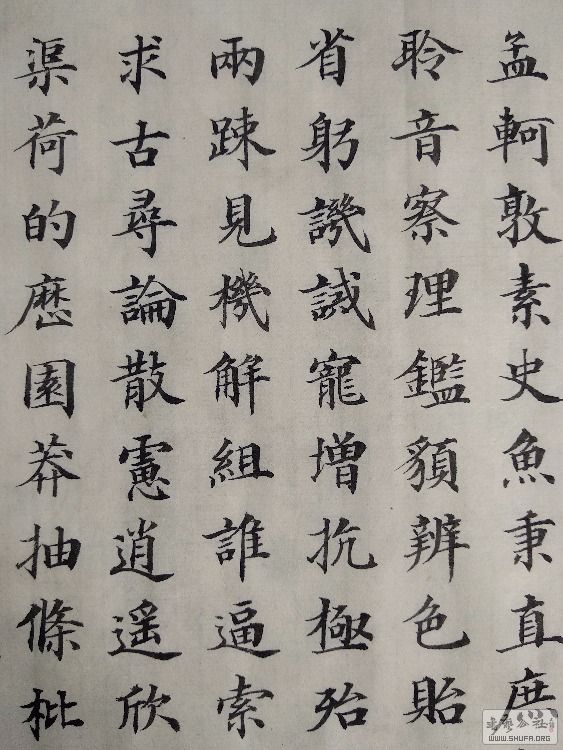 孟軻敦素史魚秉直庶
聆音察理鑑貌辨色貽
省躬譏誡寵增抗極殆
兩疎見機解組誰逼索
求古尋論散慮逍遙欣
渠荷的歷園莽抽條枇
WWW.SHUFA.ORG